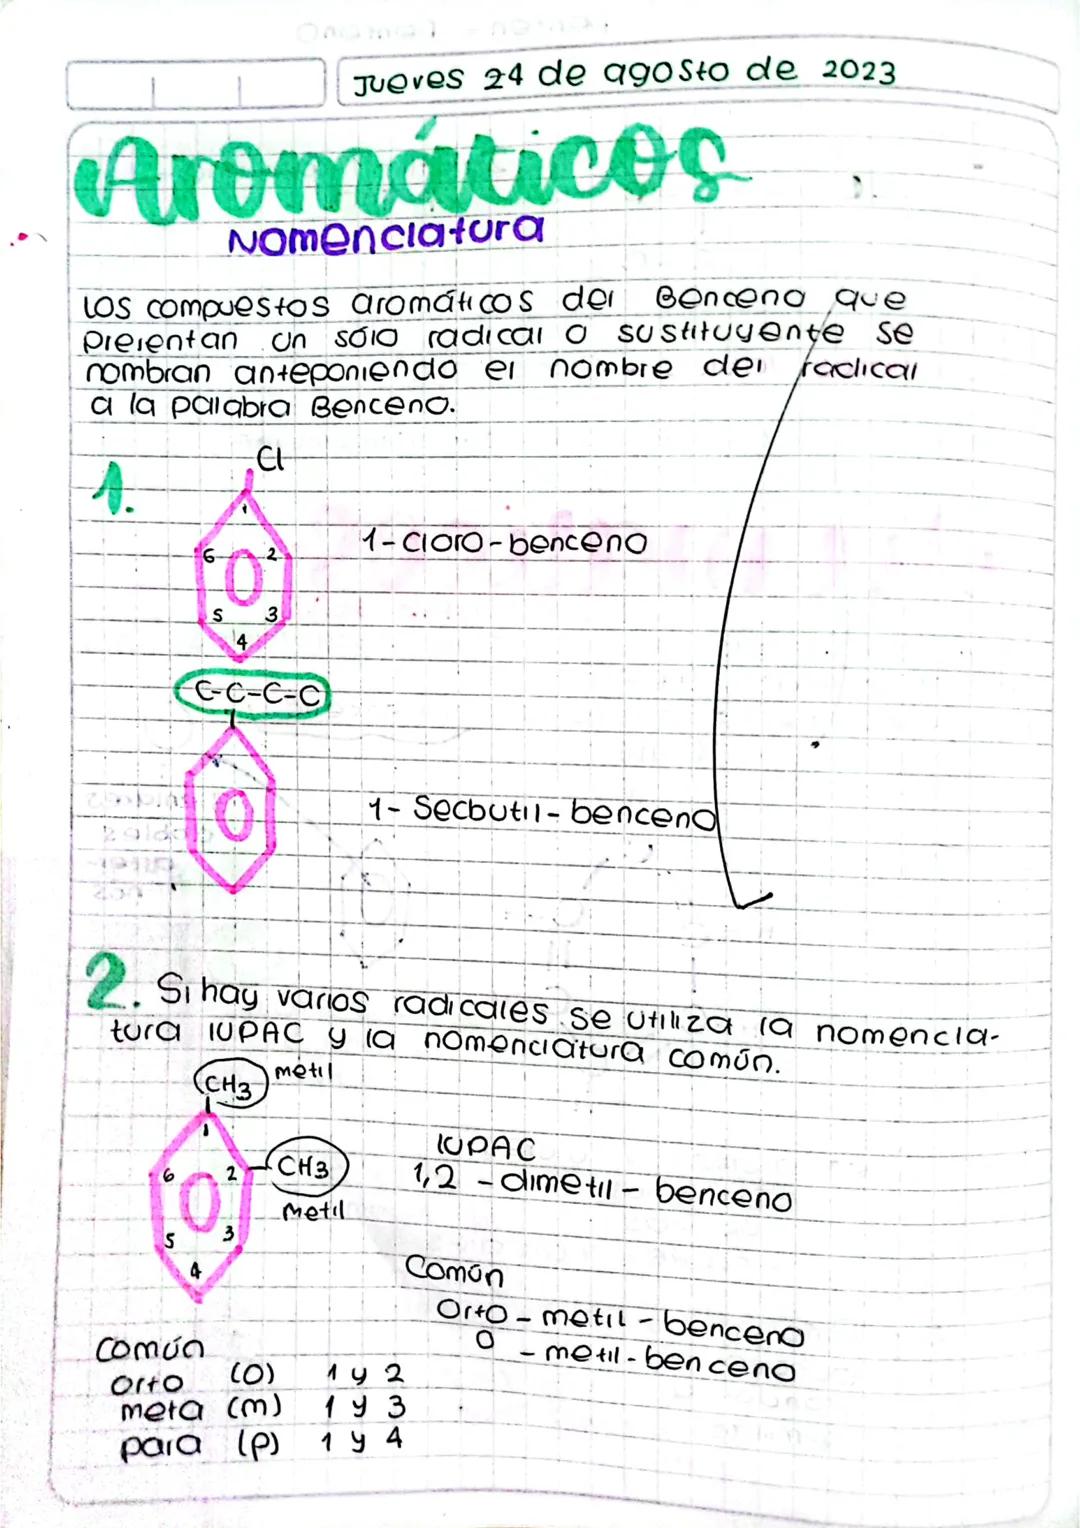 Jueves 24 de agosto de 2023
Aromáticos
Nomenclatura
Los compuestos aromáticos del Benceno que
presentan un sólo radical o sustituyente se
nombran anteponiendo el nombre del radical
a la palabra Benceno.
1.
Cl
1
6 2
5 3
4
1-cloro-benceno
C-C-C-C
1-Secbutil-benceno
2. Si hay varios radicales se utiliza la nomencla-
tura IUPAC y la nomenclatura común.
CH3 metil
1
6 2 CH3
metil
5 3
4
IUPAC
1,2-dimetil-benceno
Común
Orto-metil-benceno
O -metil-benceno
Común
orto (O) 1 y 2
meta (m) 1 y 3
para (p) 1 y 4